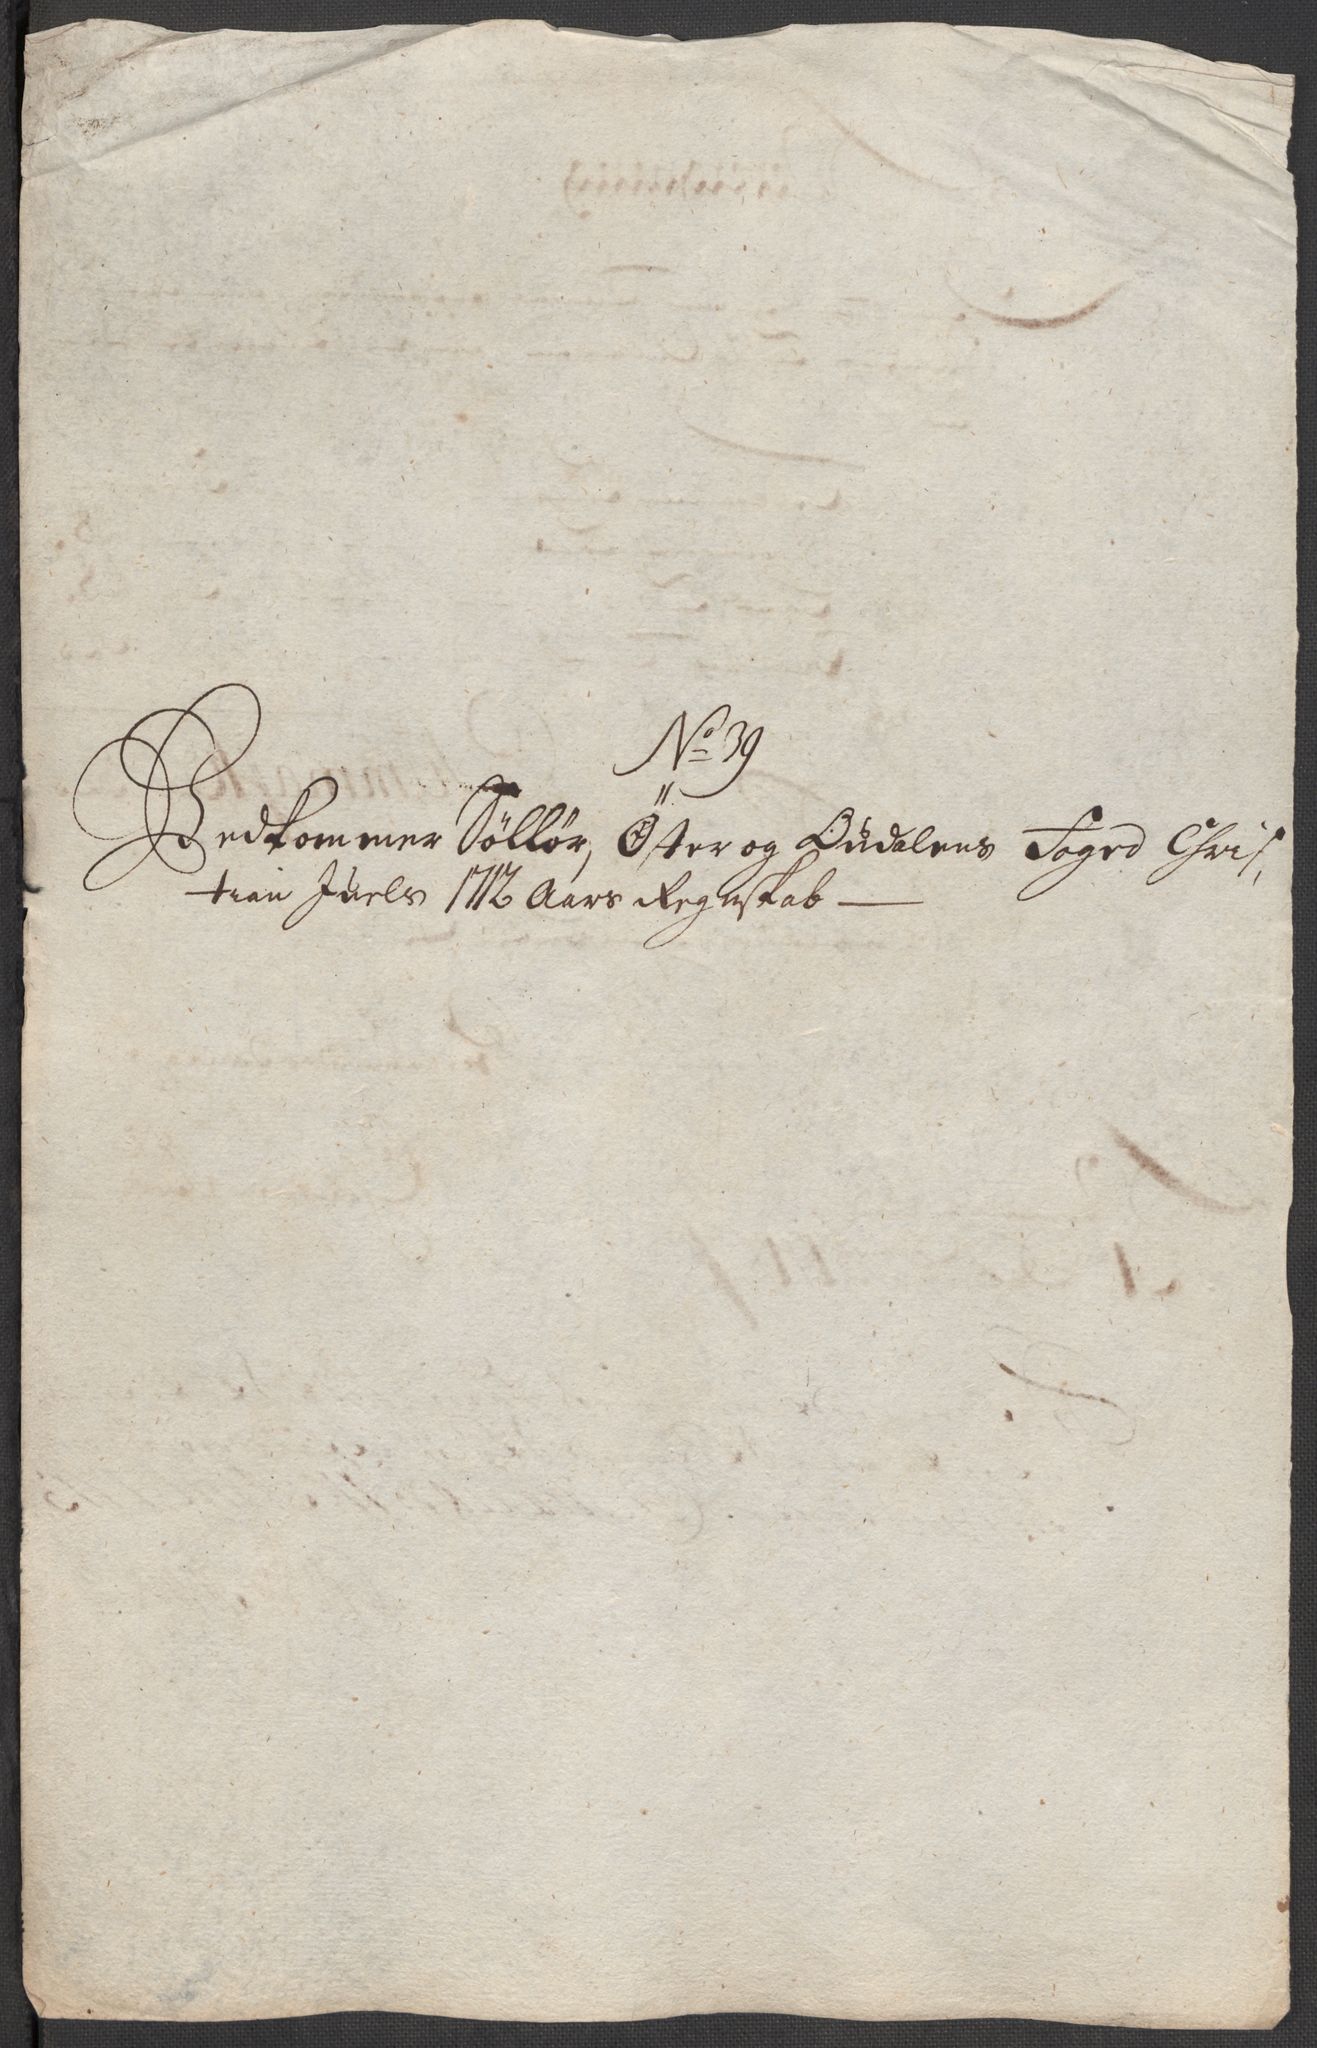 No 39
Vedkommer Söllör, Öster og Oudalens Foged Chris,
tian Juels 1712 Aars Regnskab